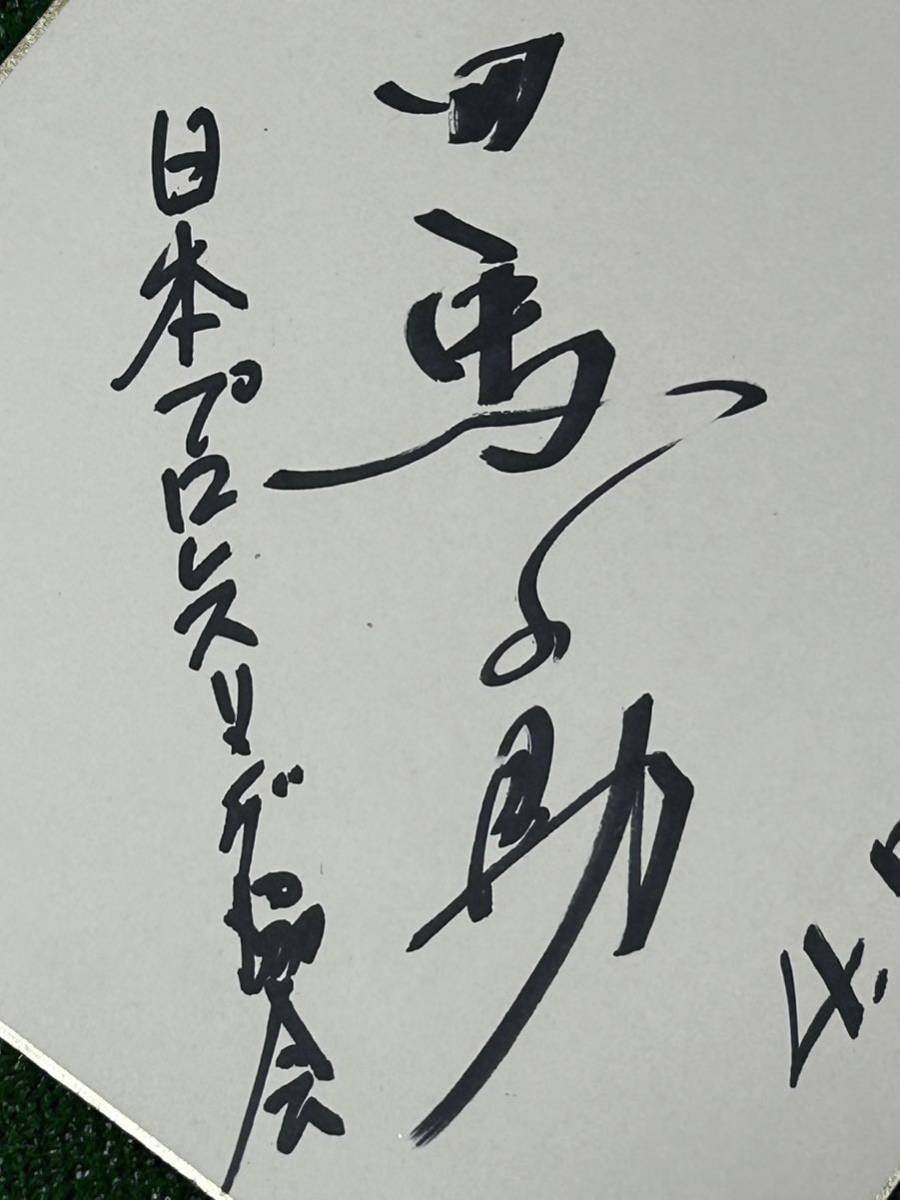 4.
田馬之助
日本プロレスリング協会